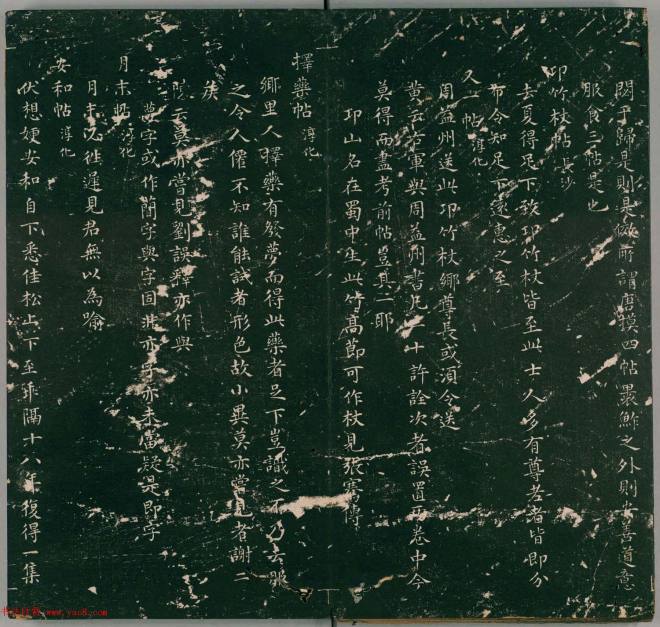 閤乎歸是則是儼所謂唐摸四帖最鮓之外則安善道意
服食三帖是也
邛竹杖帖 長沙
去夏得足下致邛竹杖皆至此士人多有尊老者皆即分
布令知足下遠惠之至
又一帖 淳化
周益州送此邛竹杖卿尊長或須今送
黄云右軍與周益州書凡二十許詮次者誤置兩卷中今
莫得而盡考前帖豈其二耶
邛山名在蜀中生此竹高節可作杖見張騫傳
擇藥帖 淳化
鄉里人擇藥有發夢而得此藥者足下豈識之不乃云服
之令人僊不知誰能試者形色故小異莫亦嘗見者謝二
侯
云莫亦嘗見劉誤釋亦作與
字或作蘭字與字固非亦字亦未當疑是即字
月末帖 淳化
月末必往遲見君無以為喻
安和帖 淳化
伏想嫂安和自下悉佳松上下至乖隔十八年復得一集
书法江湖 www.yac8.com